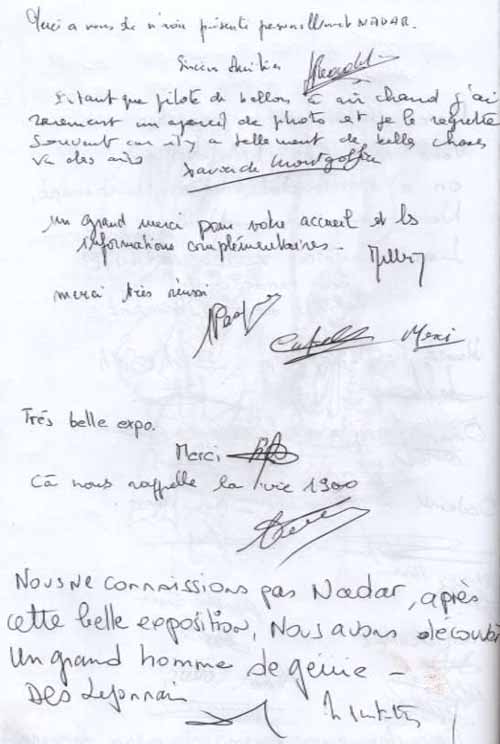 Merci a vous de m'avoir présenté personnellement NADAR.
Sincères Amitiés
Etant que pilote de ballon à air chaud j'ai
rarement un appareil de photo et je le regrette
souvent car il y a tellement de belles choses
vu des airs
Xavier de Montgolfier
un grand merci pour votre accueil et les
informations complémentaires -
merci très réussi
Merci
Très belle expo.
Merci
Cà nous rappelle la vie 1900
Nous ne connaissions pas Nadar, après
cette belle exposition, Nous avons découvert
un grand homme de génie -
Des Lyonnais